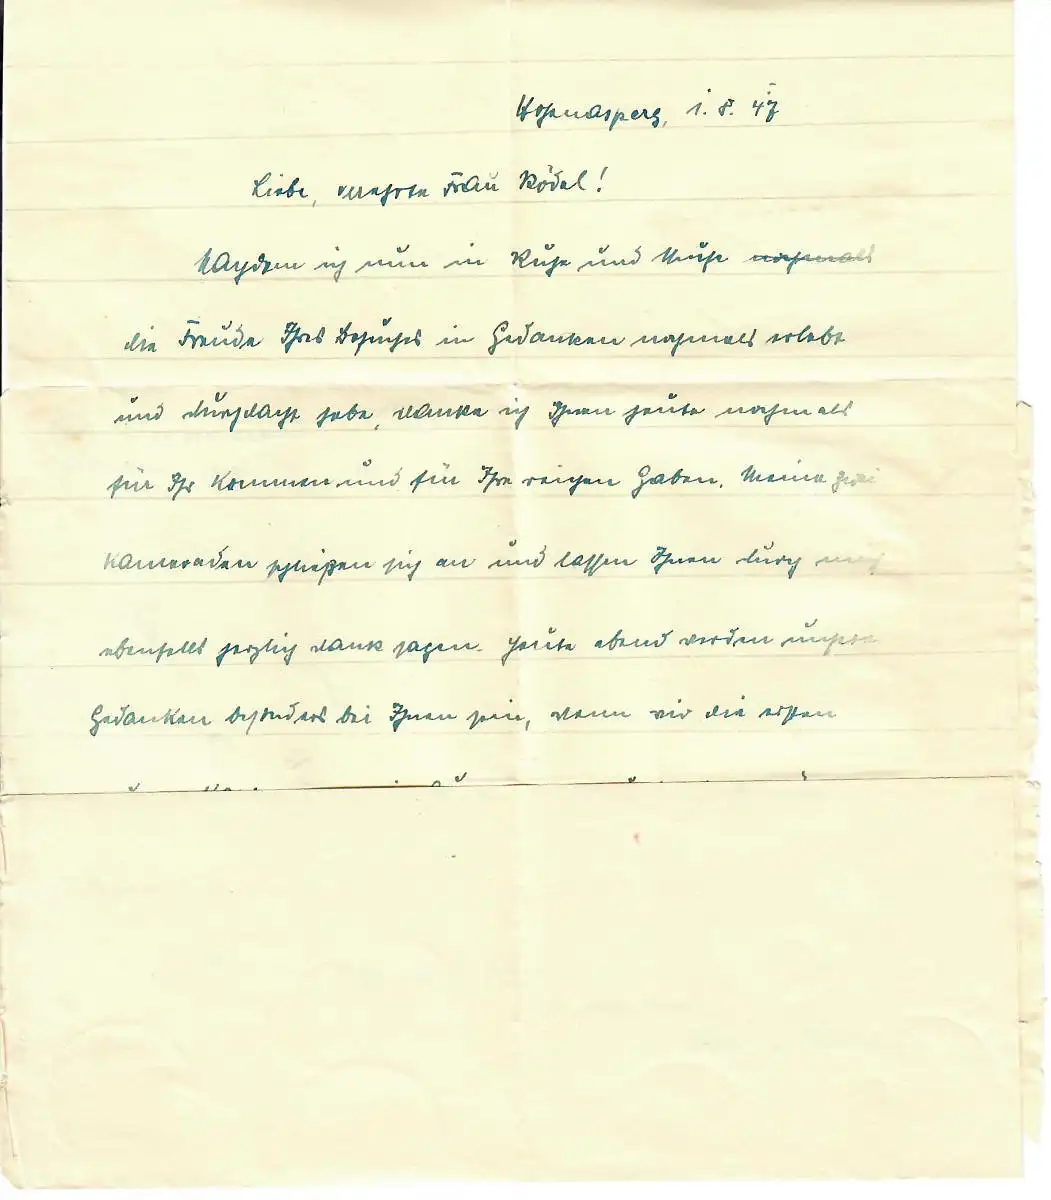 Hohenasperg, 1. 8. 47
Liebe, verehrte Frau Rödel!
Nachdem ich nun in Ruhe und Muße nochmals
die Freude Ihres Besuches in Gedanken nochmals erlebt
und durchdacht habe, danke ich Ihnen heute nochmals
für Ihr Kommen und für Ihre reichen Gaben. Meine zwei
Kameraden schließen sich an und lassen Ihnen durch mich
ebenfalls herzlich Dank sagen. Heute abend werden unsere
Gedanken besonders bei Ihnen sein, wenn wir die ersten